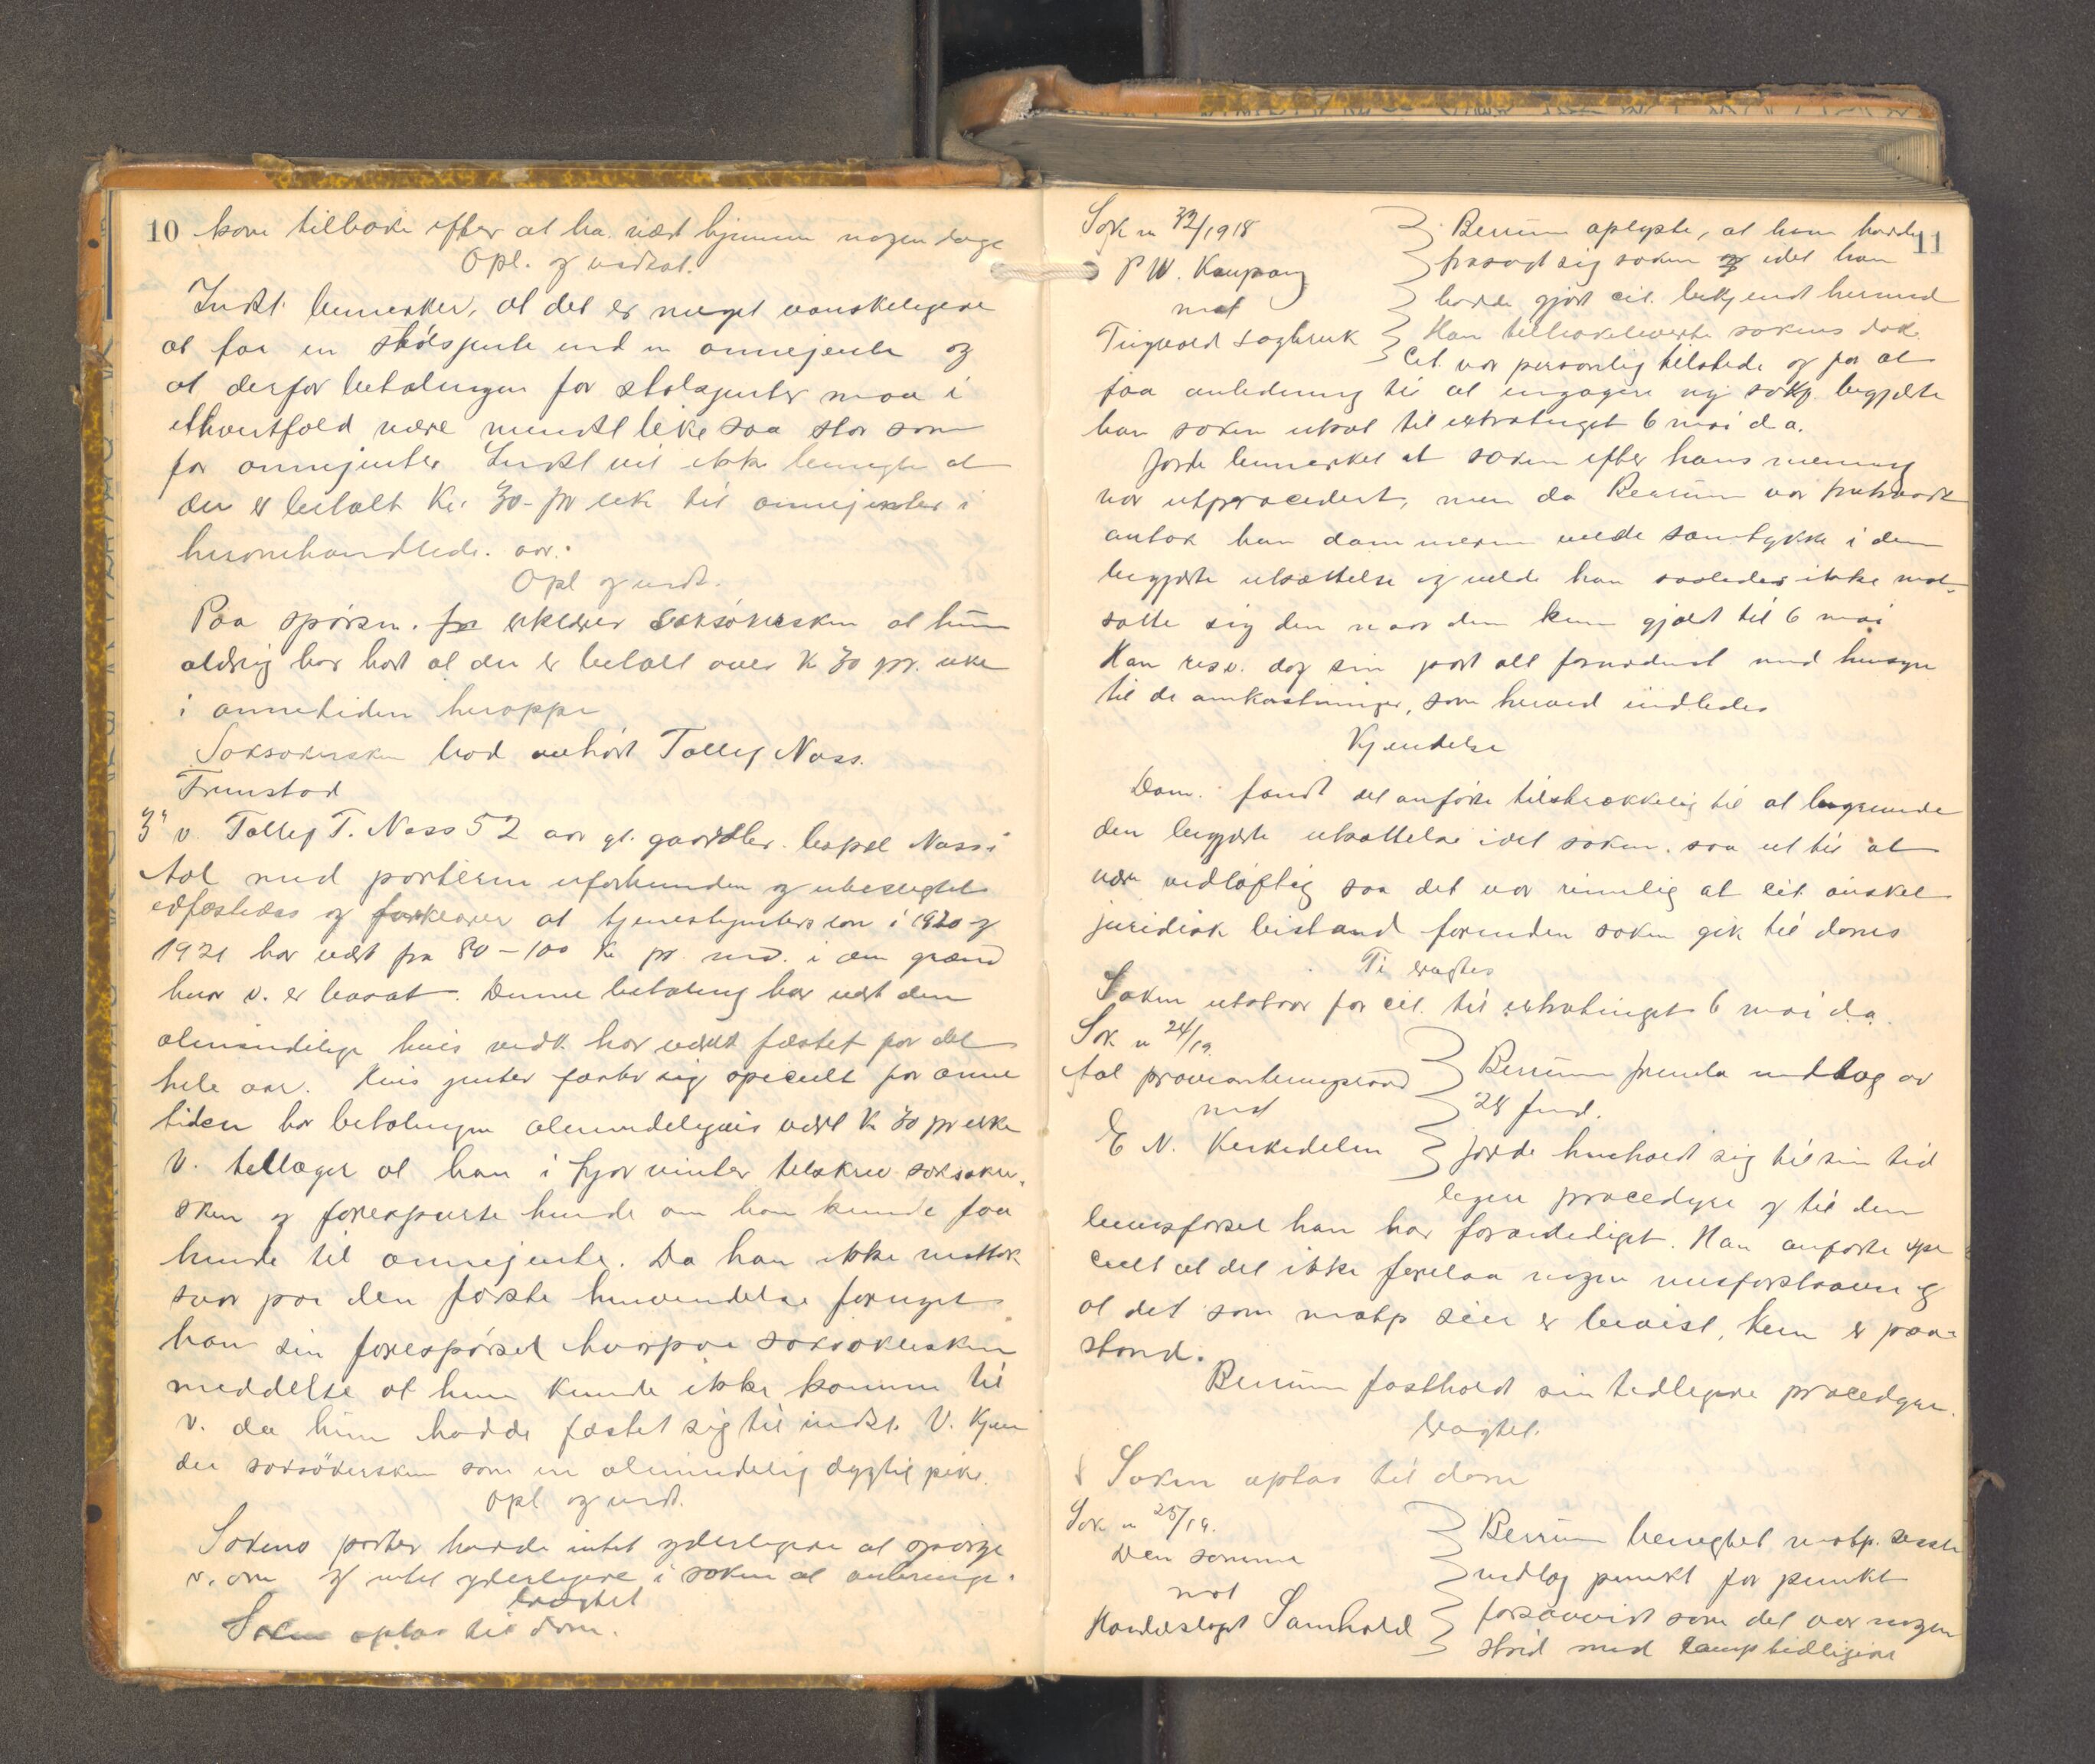 10 kom tilbake efter at ha vært hjemme nogen dage
Opl. og vedtat.
Indst. bemerker, at det er meget vanskeligere
at faa en stølsjente end en onnejente og
at derfor betalingen for stølsjenter maa i
ethvertfald være mindst like saa stor som
for onnejenter. Indst vil ikke benegte at
der er betalt Kr. 30- pr uke til onnejenter i
heromhandlede. aar.
Opl og vedt.
Paa spørsm. erklærer saksøkersken at hun
aldrig har hørt at der er betalt over Kr 30 pr. uke
i onnetiden heroppe
Saksøkersken bad avhørt Tollef Næss.
Fremstod
3' v. Tollef T. Næss 52 aar gt. gaardbr. bopæl Næss i
Aal med parterne uforbunden og ubeslegtet
edfæstedes og forklarer at tjenestejenters løn i 1920 og
1921 har vært fra 80 - 100 Kr pr. md. i den grænd
hvor v. er bosat. Denne betaling har vært den
almindelige hvis vedk. har været fæstet for det
hele aar. Hvis jenter fæster sig specielt for onne
tiden har betalingen almindeligvis vært Kr 30 pr uke
V. tillæger at han i fjor vinter tilskrev saksøker-
sken og forespurte hende om han kunde faa
hende til onnejente. Da han ikke mottok
svar paa den første henvendelse fornyet
han sin forespørsel hvorpaa saksøkersken
meddelte at hun kunde ikke komme til
v. da hun hadde fæstet sig til indst. V. kjen
der saksøkersken som en almindelig dygtig pike.
Opl og vedt.
Sakens parter havde intet yderligere at spørge
v. om og intet yderligere i saken at anbringe.
Eragtet
Saken optas til dom.
Sak n 32/1918
P W. Kaupang
mot
Tingvold sagbruk
Berrum oplyste, at han hadde 11
frasagt sig saken og idet han
hadde gjort cit. bekjendt hermed
Han tilbakeleverte sakens dok.
Cit. var personlig tilstede og for at
faa anledning til at engagere ny sakf. begjærte
han saken utsat til extratinget 6 mai d. a.
Jorde bemerket at saken efter hans mening
var utprocedert, men da Berrum var fratraadt
antok han dommeren vilde samtykke i den
begjærte utsættelse og vilde han saaledes ikke mot-
sætte sig den naar den kun gjældt til 6 mai
Han resv. dog sin part alt fornødent med hensyn
til de omkostninger, som herved indledes
Kjendelse
Dom. fandt det anførte tilstrækkelig til at begrunde
den begjærte utsættelse idet saken saa ut til at
være vidløftig saa det var rimelig at cit. ønsket
juridisk bistand forinden saken gik til doms
Ti eragtes
Saken utstaar for cit. til extratinget 6 mai d.a.
Sak n 24/19.
Aal provianteringsraad
mot
E N. Kirkedelen
Berrum fremla indlæg av
28 ds.
Jorde henholdt sig til sin tid
ligere procedyre og til den
bevisførsel han har foranlediget. Han anførte spe
cielt at det ikke forelaa nogen misforstaaen og
at det som motp sier er bevist, kun er paa-
stand.
Berrum fastholdt sin tidligere procedyre.
Eragtet.
Saken optas til dom
Sak n 25/19.
Den samme
mot
Handelslaget Samhold
Berrum benegtet motp. seneste
indlæg punkt for punkt
forsaavidt som det var nogen
strid med hans tidligere